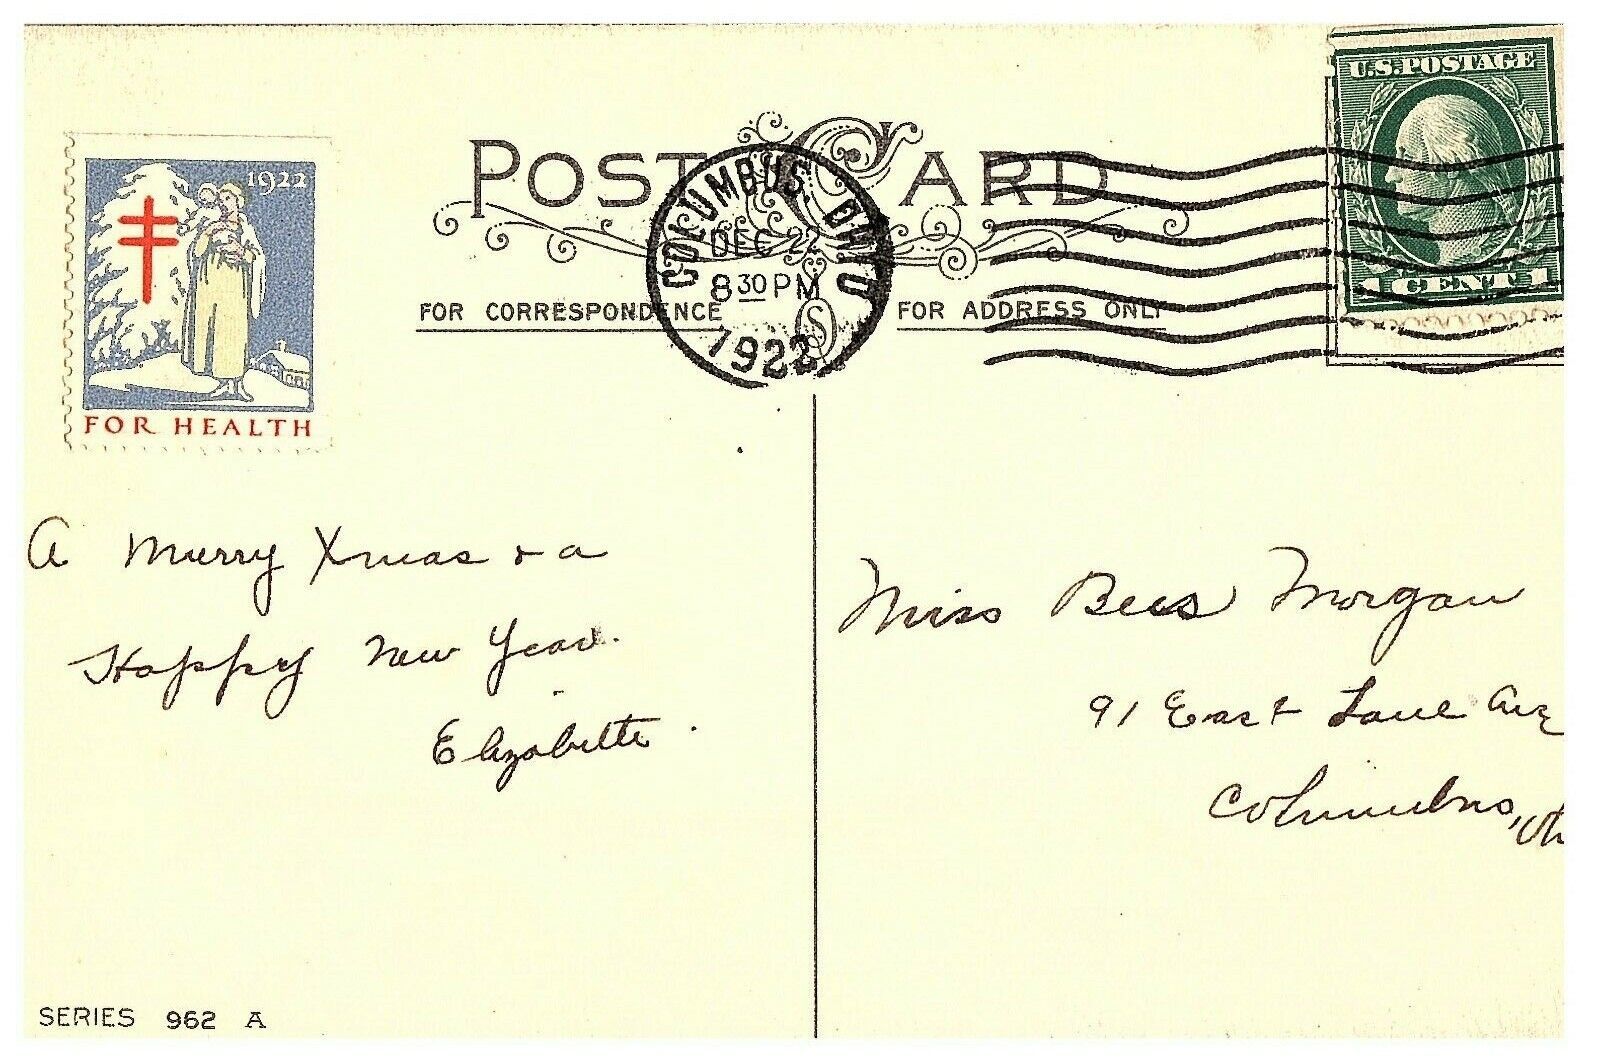 POST CARD
U.S.POSTAGE
1 CENT 1
COLUMBUS, OHIO
DEC 22
8 30 PM
1922
1922
FOR HEALTH
FOR CORRESPONDENCE
FOR ADDRESS ONLY
A Merry Xmas & a
Happy New Year.
Elizabeth.
Miss Bess Morgan
91 East Lane Ave
Columbus, Oh
SERIES 962 A